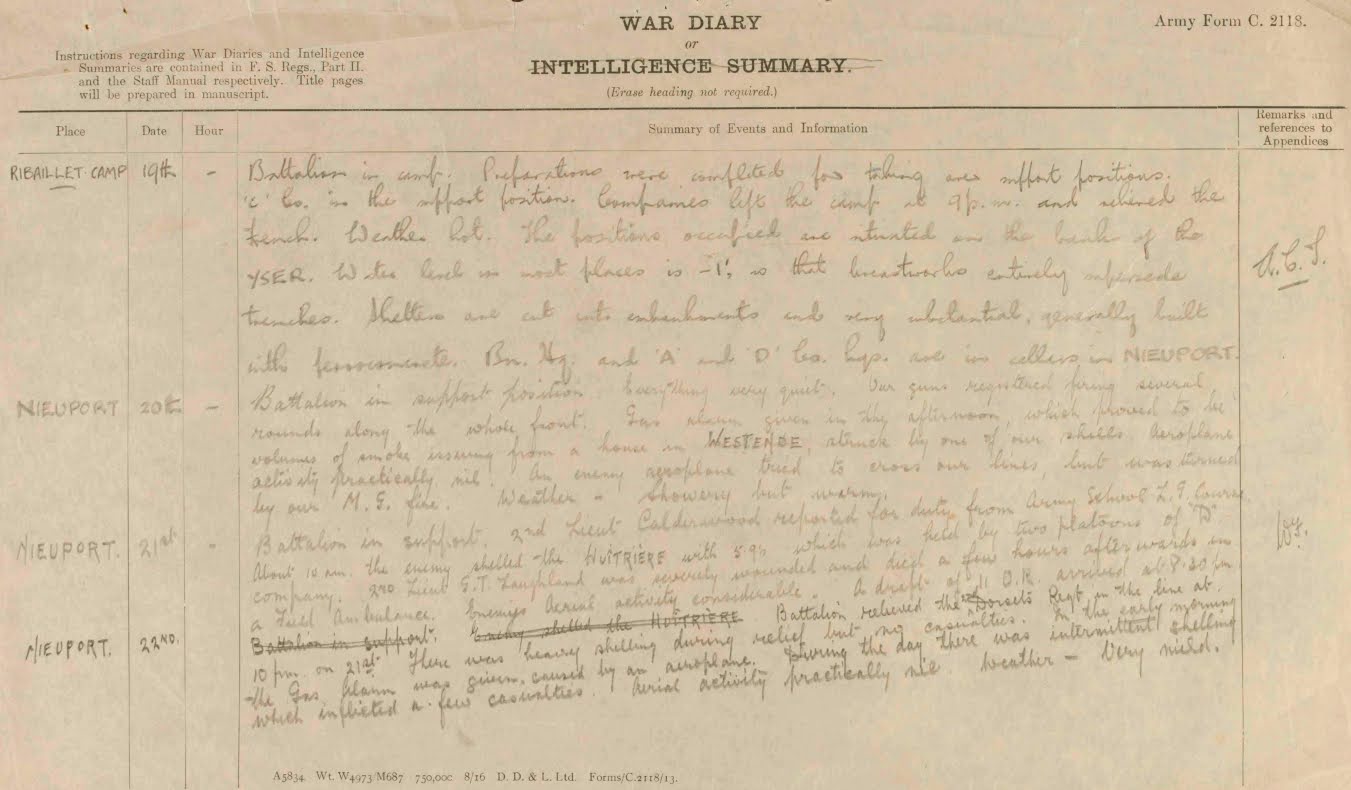 WAR DIARY
or
INTELLIGENCE SUMMARY.
(Erase heading not required.)
Army Form C. 2118.
Instructions regarding War Diaries and Intelligence
Summaries are contained in F. S. Regs., Part II.
and the Staff Manual respectively. Title pages
will be prepared in manuscript.
Place Date Hour Summary of Events and Information Remarks and references to Appendices
RIBAILLET CAMP 19th - Battalion in camp. Preparations were completed for taking over support positions.
'C' Co. in the support position. Companies left the camp at 9 p.m. and relieved the
trench. Weather hot. The positions occupied are situated on the banks of the
YSER. Water level in most places is -1', so that breastworks entirely supersede
trenches. Shelters are cut into embankments and very substantial, generally built
with ferroconcrete. Bn. Hq. and 'A' and 'D' Co. hqs. are in cellars in NIEUPORT.
NIEUPORT 20th - Battalion in support position. Everything very quiet. Our guns registered firing several
rounds along the whole front. Gas alarm given in the afternoon, which proved to be
volumes of smoke issuing from a house in WESTENDE, struck by one of our shells. Aeroplane
activity practically nil. An enemy aeroplane tried to cross our lines, but was turned
by our M.G. fire. Weather - Showery but warm.
NIEUPORT. 21st - Battalion in support. 2nd Lieut Calderwood reported for duty from Army School L.G. Course
About 10 am. the enemy shelled the HUÎTRIÈRE with 5.9's which was held by two platoons of "D"
company. 2nd Lieut G.T. Laughland was severely wounded and died a few hours afterwards in
a Field Ambulance. Enemy's Aerial activity considerable. A draft of 11 O.R. arrived at 8.30 pm
NIEUPORT. 22nd. Battalion in support. Enemy shelled the HUÎTRIÈRE Battalion relieved the Dorsets Regt. in the line at
10 pm. on 21st. There was heavy shelling during relief but no casualties. In the early morning
the Gas Alarm was given, caused by an aeroplane. During the day there was intermittent shelling
which inflicted a few casualties. Aerial activity practically nil. Weather - Very mild.
A5834 Wt. W4973/M687 750,000 8/16 D. D. & L. Ltd. Forms/C.2118/13.